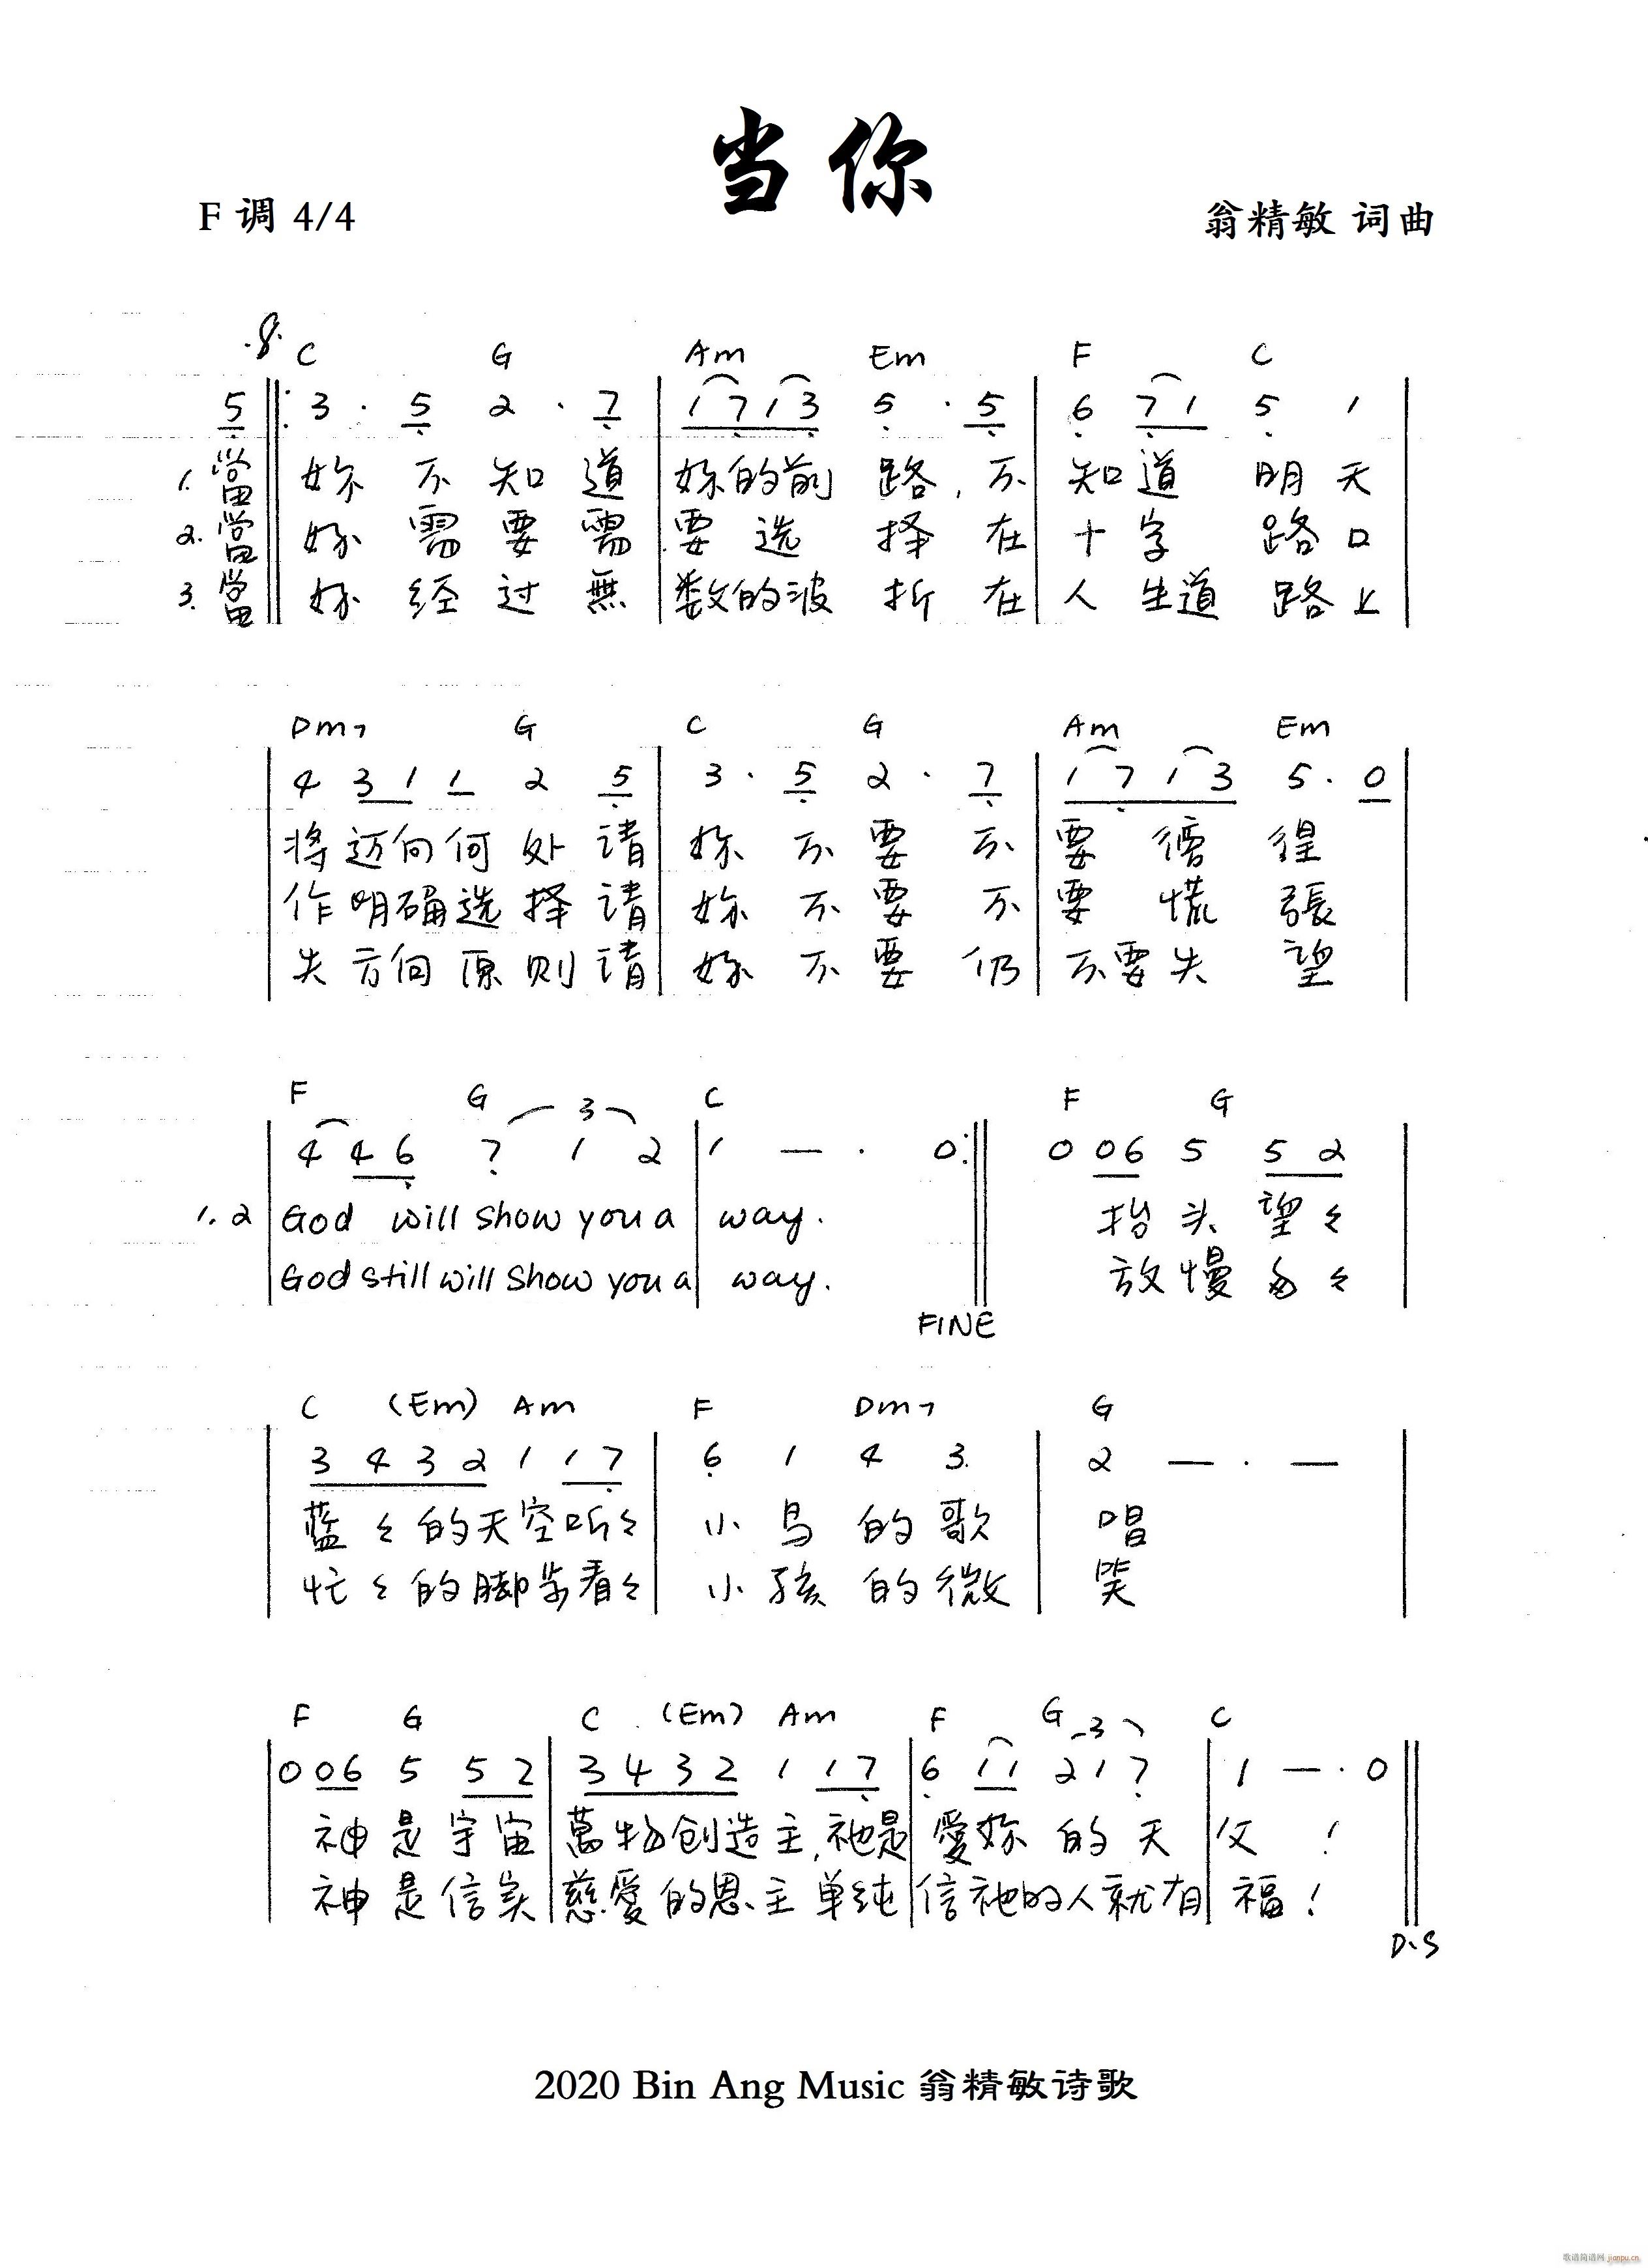 当你
F 调 4/4
翁精敏 词曲
C G Am Em F C
5 ‖: 3 · 5 2 · 7 | 1 7 1 3 5 · 5 | 6 7 1 5 1 |
1. 當 妳 不 知 道 妳的前 路, 不 知 道 明 天
2. 當 妳 需 要 需 要 选 择 在 十 字 路 口
3. 當 妳 经 过 無 数的波 折 在 人 生道 路 上
Dm7 G C G Am Em
| 4 3 1 1 2 5 | 3 · 5 2 · 7 | 1 7 1 3 5 · 0 |
将 迈向 何 处 请 妳 不 要 不 要 徬 徨
作 明确选 择 请 妳 不 要 不 要 慌 張
失 方向 原 则 请 妳 不 要 仍 不要 失 望
F G 3 C F G
| 4 4 6 7 1 2 | 1 — · 0 :‖ 0 0 6 5 5 2 |
1. 2 God will show you a way. 抬 头 望 々
God still will show you a way. 放 慢 匆 々
FINE
C (Em) Am F Dm7 G
| 3 4 3 2 1 1 7 | 6 1 4 3 | 2 — · — |
蓝 々 的 天 空 听々 小 鸟 的 歌 唱
忙 々 的 脚 步 看々 小 孩 的 微 笑
F G C (Em) Am F G 3 C
| 0 0 6 5 5 2 | 3 4 3 2 1 1 7 | 6 1 1 2 1 7 | 1 — · 0 ‖
神 是 宇 宙 萬 物 创 造 主, 祂是 愛 妳 的 天 父 !
神 是 信 实 慈 愛 的 恩 主 单纯 信 祂的人就有 福 !
D.S
2020 Bin Ang Music 翁精敏诗歌
歌谱简谱网 jianpu.cn